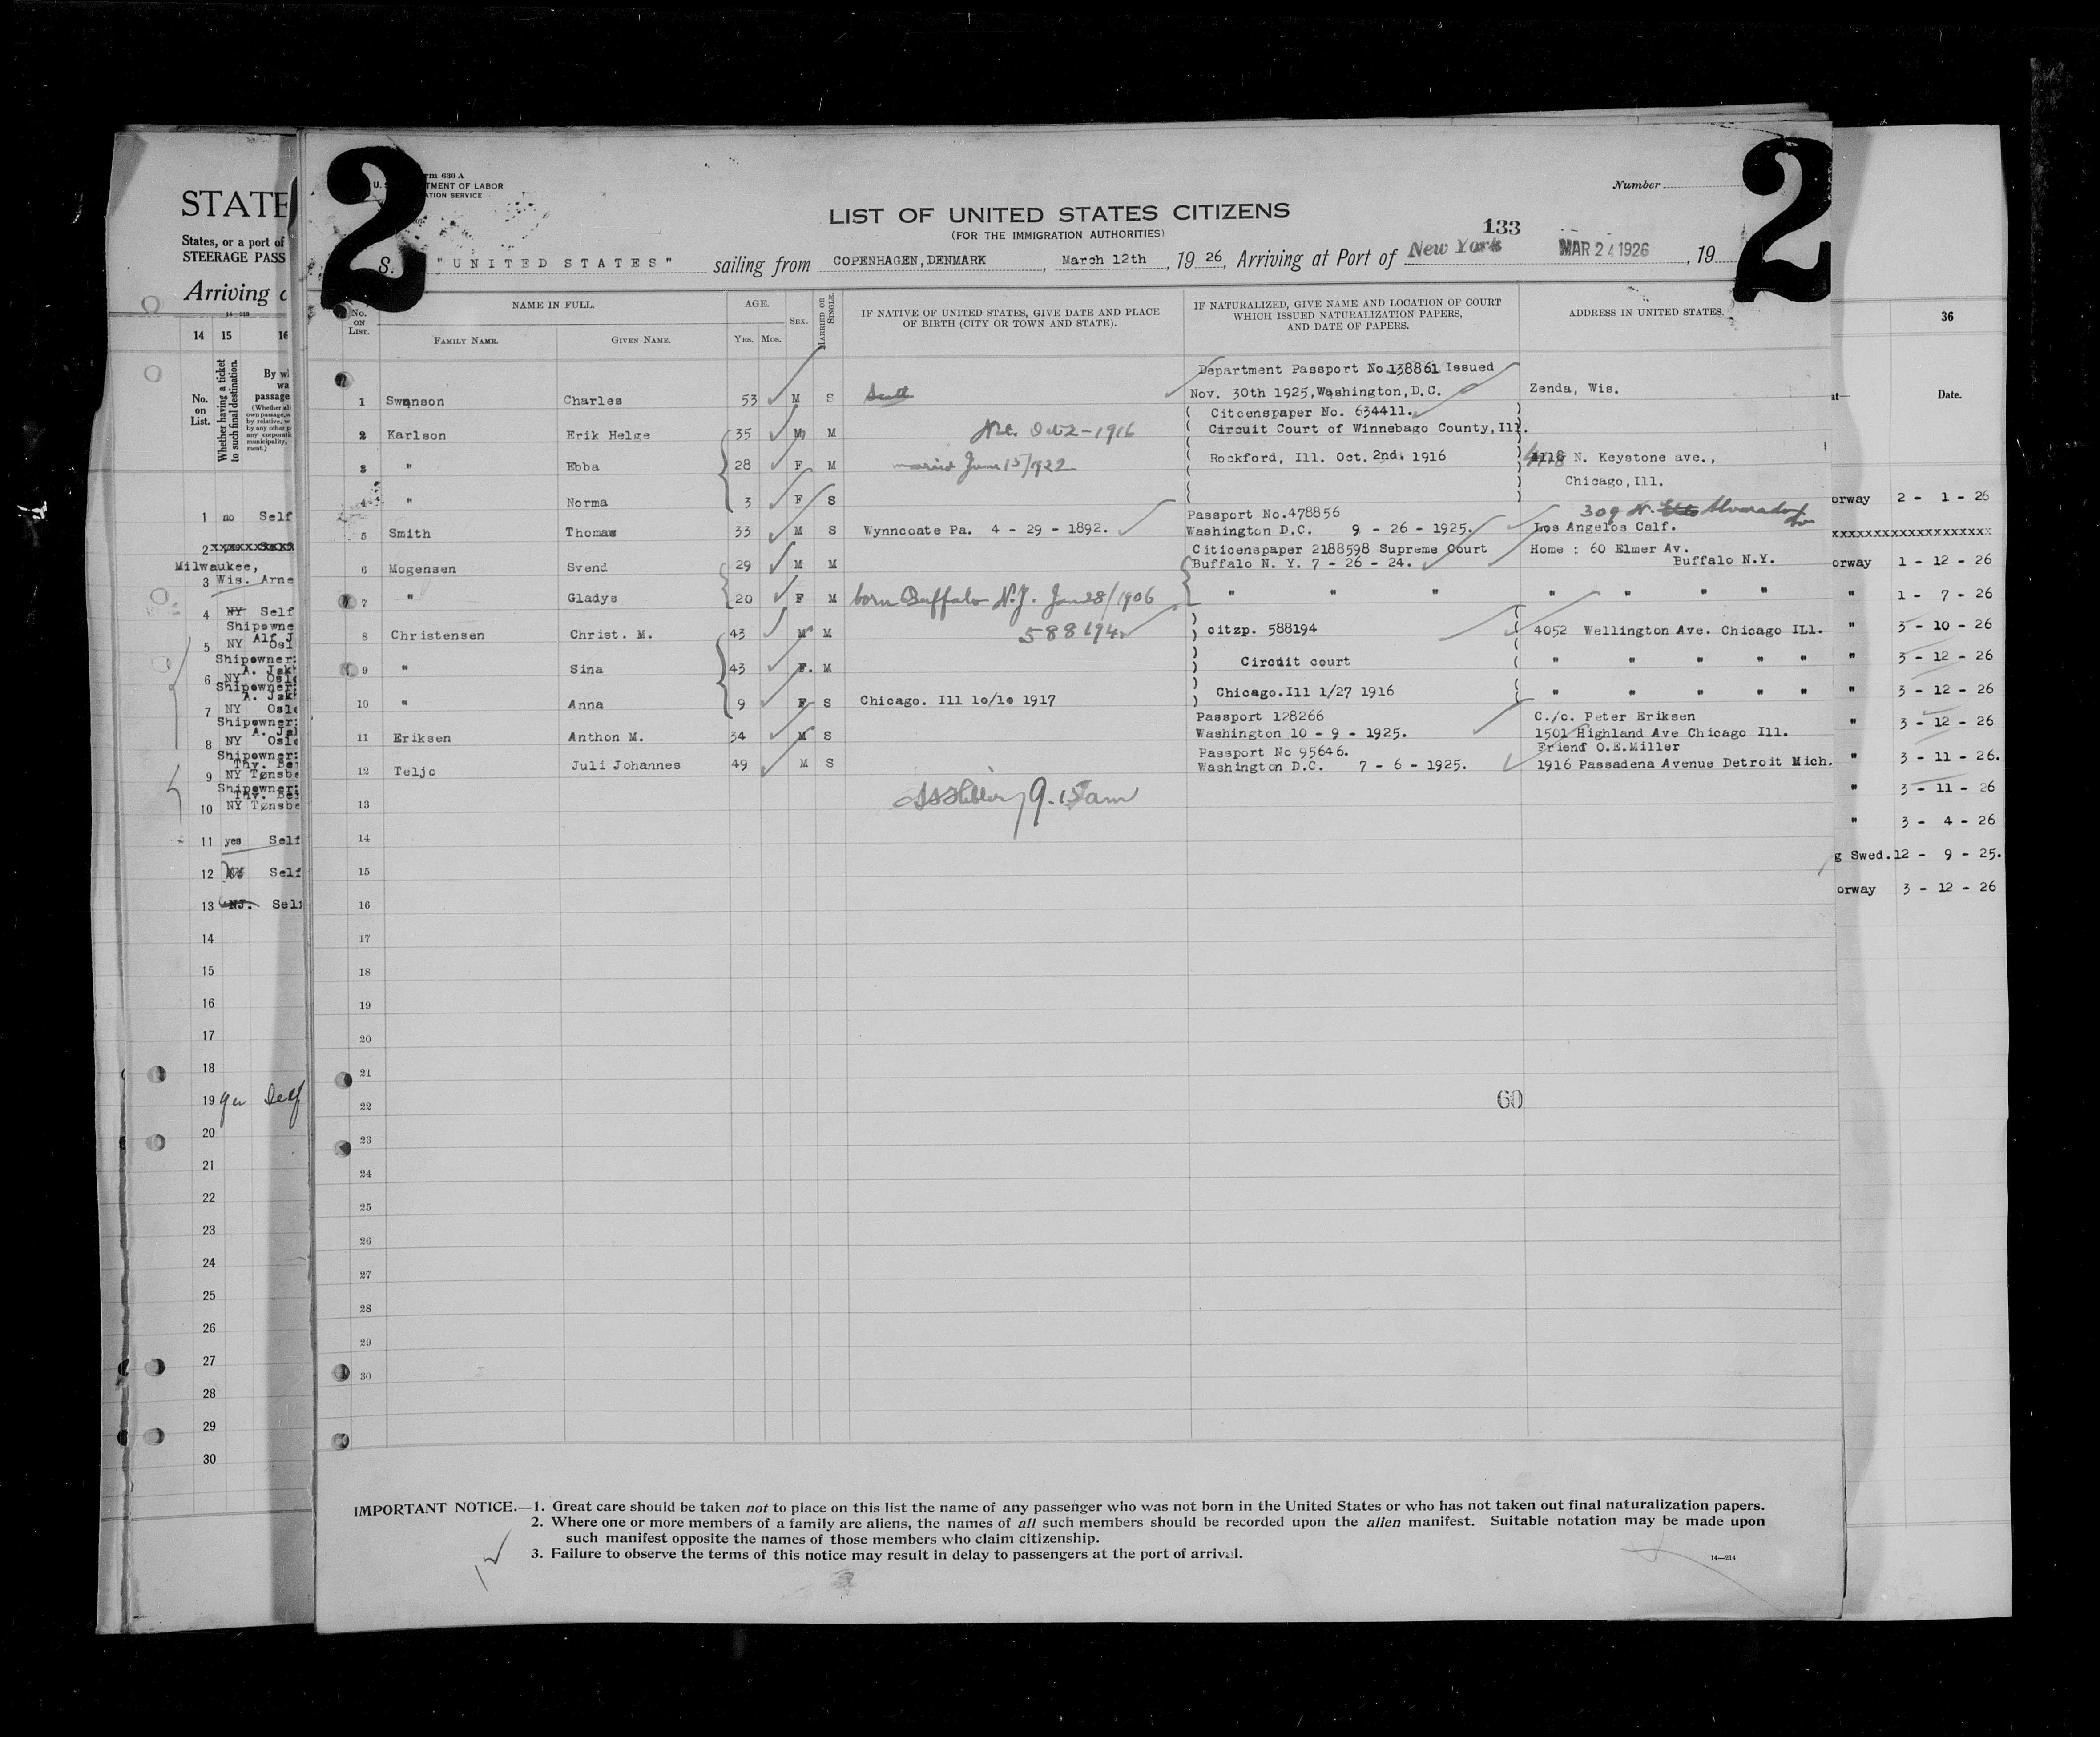 STATE
States, or a port of
STEERAGE PASS
Arriving
14—213
14 15 16
No. on List.
Whether having a ticket to such final destination.
By wh
wa
passage
1 no Self
2
Milwaukee,
3 Wis. Arne
4 NY Self
Shipowne
Alf J
5 NY Osl
Shipowner:
A. Jak
6 NY Oslo
Shipowner:
A. Jak
7 NY Oslo
Shipowner:
A. Jal
8 NY Oslo
Shipowner:
Thv. Ber
9 NY Tønsbe
Shipowner:
Thv. Ber
10 NY Tønsbe
11 yes Self
12 NY Self
13 NJ. Self
14
15
16
17
18
19 Self
20
21
22
23
24
25
26
27
28
29
30
2
rm 630 A
U. S. TMENT OF LABOR
ATION SERVICE
Number
2
LIST OF UNITED STATES CITIZENS
(FOR THE IMMIGRATION AUTHORITIES)
133
S. "UNITED STATES" sailing from COPENHAGEN,DENMARK, March 12th, 1926, Arriving at Port of New York MAR 24 1926, 19
No. on List.
NAME IN FULL.
Family Name. Given Name.
AGE.
Yrs. Mos.
Sex.
Married or Single.
IF NATIVE OF UNITED STATES, GIVE DATE AND PLACE
OF BIRTH (CITY OR TOWN AND STATE).
IF NATURALIZED, GIVE NAME AND LOCATION OF COURT
WHICH ISSUED NATURALIZATION PAPERS,
AND DATE OF PAPERS.
ADDRESS IN UNITED STATES.
Department Passport No.138861 Issued
1 Swanson Charles 53 M S Nov. 30th 1925,Washington,D.C. Zenda, Wis.
Citcenspaper No. 634411.
2 Karlson Erik Helge 35 M M Nat. Oct 2-1916 Circuit Court of Winnebago County,Ill.
3 " Ebba 28 F M married June 15/1922 Rockford, Ill. Oct. 2nd. 1916 4118 N. Keystone ave.,
Chicago,Ill.
4 " Norma 3 F S
Passport No.478856 309 N. Alvarado
5 Smith Thomas 33 M S Wynncoate Pa. 4 - 29 - 1892. Washington D.C. 9 - 26 - 1925. Los Angelos Calf.
Citicenspaper 2188598 Supreme Court Home : 60 Elmer Av.
6 Mogensen Svend 29 M M Buffalo N. Y. 7 - 26 - 24. Buffalo N.Y.
7 " Gladys 20 F M born Buffalo N.Y. Jan 28/1906 " " " " " " "
8 Christensen Christ. M. 43 M M 588194 citzp. 588194 4052 Wellington Ave. Chicago ILl.
9 " Sina 43 F. M Circuit court " " " " "
10 " Anna 9 F S Chicago. Ill 1o/1o 1917 Chicago.Ill 1/27 1916 " " " " "
Passport 128266 C./o. Peter Eriksen
11 Eriksen Anthon M. 34 M S Washington 10 - 9 - 1925. 1501 Highland Ave Chicago Ill.
Passport No 95646. Friend O.E.Miller
12 Teljo Juli Johannes 49 M S Washington D.C. 7 - 6 - 1925. 1916 Passadena Avenue Detroit Mich.
13 9.15am
14
15
16
17
18
19
20
21
22 60
23
24
25
26
27
28
29
30
IMPORTANT NOTICE.—1. Great care should be taken not to place on this list the name of any passenger who was not born in the United States or who has not taken out final naturalization papers.
2. Where one or more members of a family are aliens, the names of all such members should be recorded upon the alien manifest. Suitable notation may be made upon
such manifest opposite the names of those members who claim citizenship.
3. Failure to observe the terms of this notice may result in delay to passengers at the port of arrival.
14—214
36
at— Date.
orway 2 - 1 - 26
xxxxxxxxxxxxxxxxxx
orway 1 - 12 - 26
" 1 - 7 - 26
" 3 - 10 - 26
" 3 - 12 - 26
" 3 - 12 - 26
" 3 - 12 - 26
" 3 - 11 - 26.
" 3 - 11 - 26
" 3 - 4 - 26
g Swed.12 - 9 - 25.
orway 3 - 12 - 26